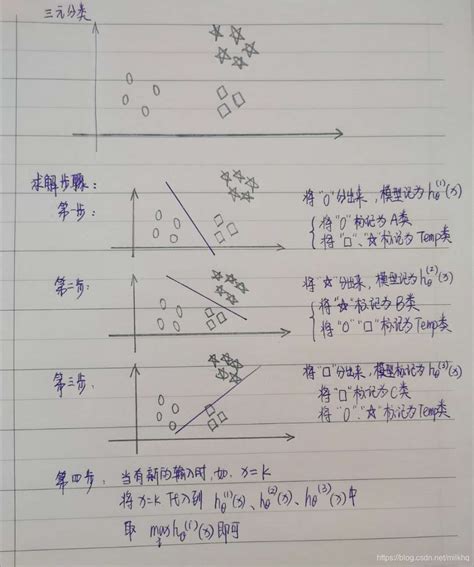 三元分类
求解步骤:
第一步:
将"O"分出来,模型记为hθ⁽¹⁾(x)
将"O"标记为A类
将"□"、"☆"标记为Temp类
第二步:
将"☆"分出来,模型记为hθ⁽²⁾(x)
将"☆"标记为B类
将"O""□"标记为Temp类
第三步.
将"□"分出来,模型标记为hθ⁽³⁾(x)
将"□"标记为C类
将"O"."☆"标记为Temp类
第四步: 当有新的输入时,如. x=k
将x=k代入到 hθ⁽¹⁾(x)、hθ⁽²⁾(x)、hθ⁽³⁾(x)中
取 max hθ⁽ⁱ⁾(x)即可
i
https://blog.csdn.net/milkhq